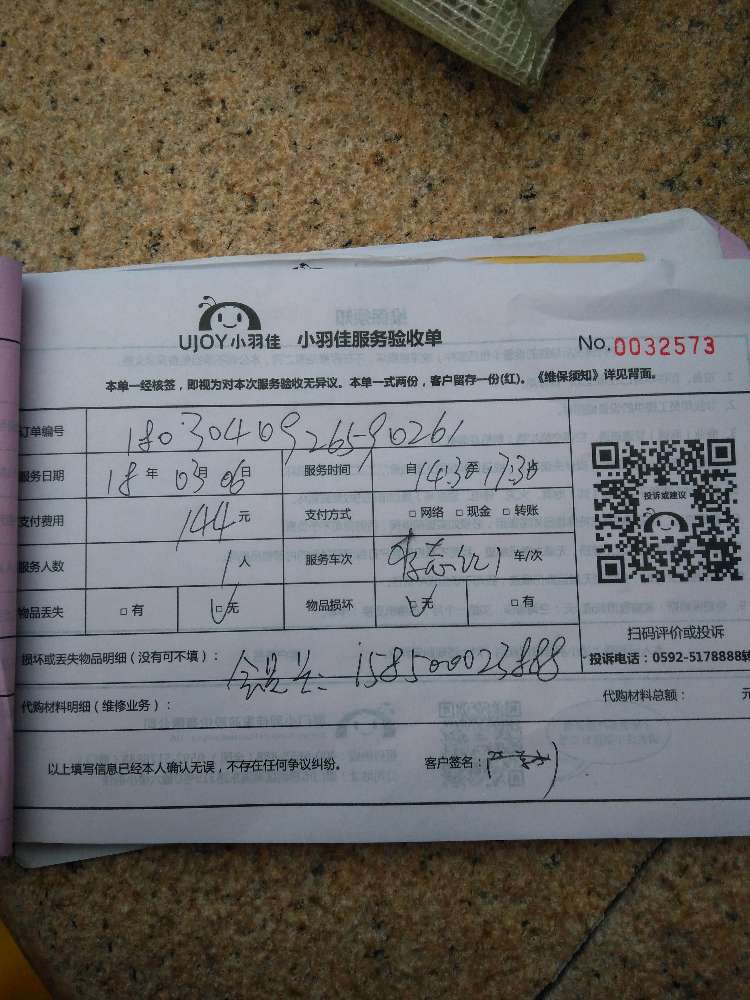 UJOY小羽佳 小羽佳服务验收单 No.0032573
本单一经核签，即视为对本次服务验收无异议。本单一式两份，客户留存一份(红)。《维保须知》详见背面。
订单编号 1803040926590261
服务日期 18年03月06日 服务时间 自14:30至17:30
支付费用 144元 支付方式 □网络 □现金 □转账
服务人数 1人 服务车次 车/次
物品丢失 □有 □无 物品损坏 □无 □有
投诉或建议
扫码评价或投诉
投诉电话：0592-5178888转
损坏或丢失物品明细（没有可不填）： 158500023888
代购材料明细（维修业务）： 代购材料总额： 元
以上填写信息已经本人确认无误，不存在任何争议纠纷。 客户签名：